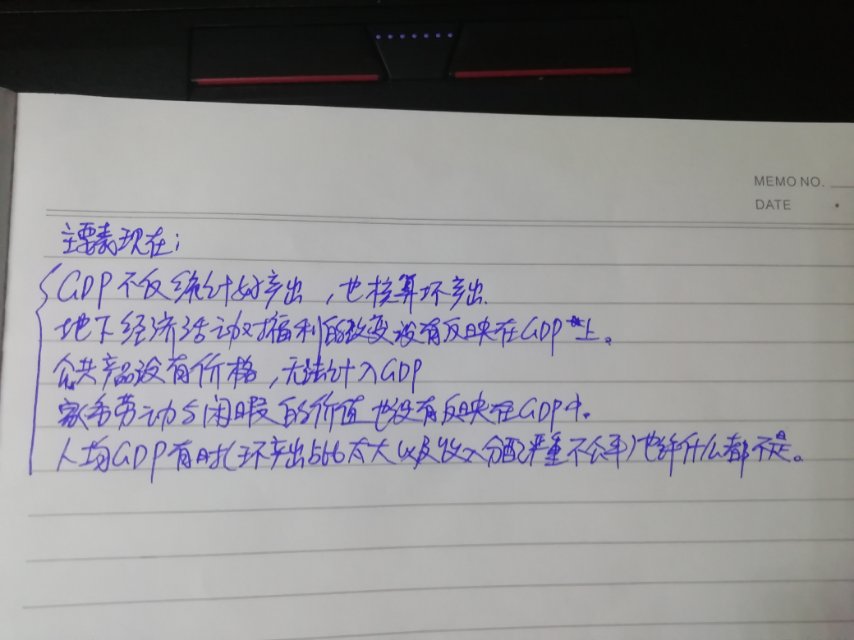 MEMO NO.
DATE
主要表现在：
GDP不仅统计好产出，也核算坏产出.
地下经济活动对福利的改变没有反映在GDP上。
公共产品没有价格，无法计入GDP
家务劳动与闲暇的价值也没有反映在GDP中。
人均GDP有时(坏产出占比太大以及收入分配严重不公平)也许什么都不是。